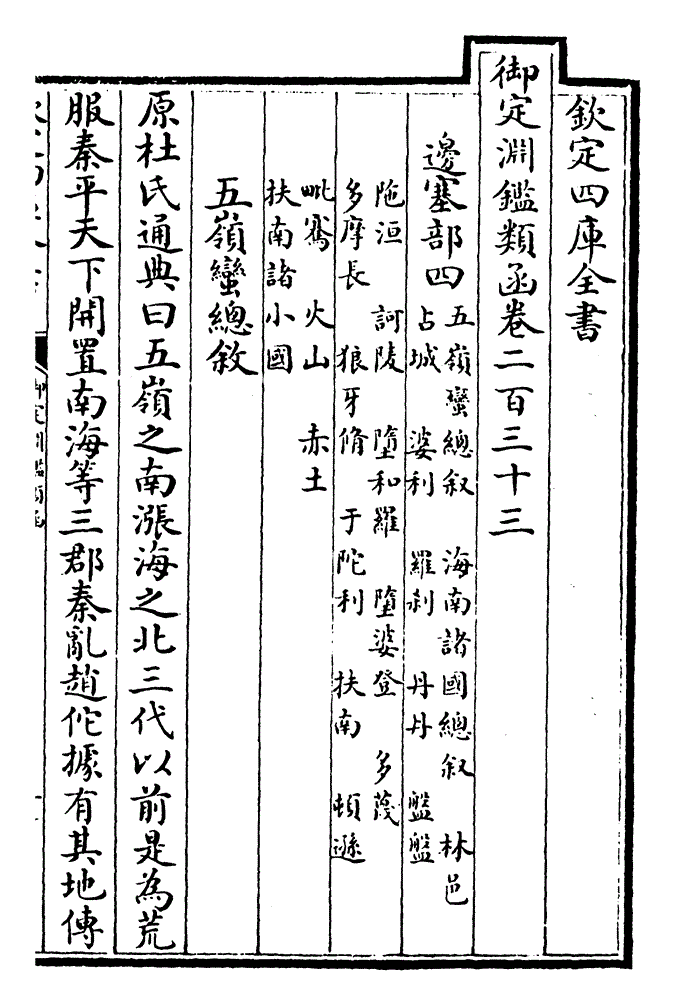 欽定四庫全書
御定淵鑑類函卷二百三十三
邊塞部四
五嶺蠻總叙 海南諸國總叙 林邑
占城 婆利 羅刹 丹丹 盤盤
陁洹 訶陵 墮和羅 墮婆登 多蔑
多摩長 狼牙脩 于陀利 扶南 頓遜
毗騫 火山 赤土
扶南諸小國
五嶺蠻總敘
原杜氏通典曰五嶺之南漲海之北三代以前是為荒
服秦平天下開置南海等三郡秦亂趙佗據有其地傳
御定淵鑑類函